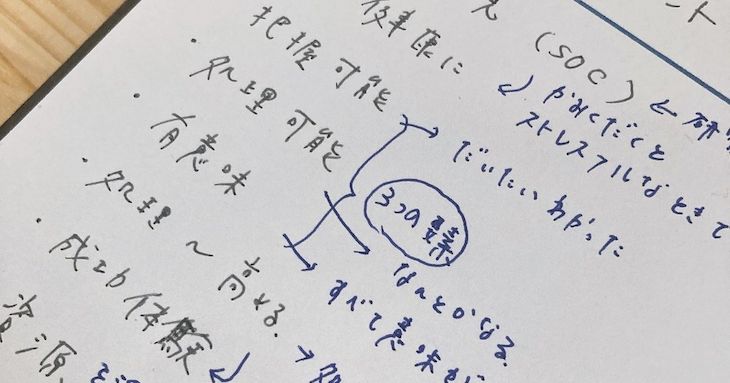 ント
(SOC) ← 研
健康に
かみくだくと
ストレスフルなときで
把握可能
・処理可能
→ だいたいわかった
・有意味
3つの要素
・処理～高める。
なんとかなる。
すべて意味が
・成功体験
資源